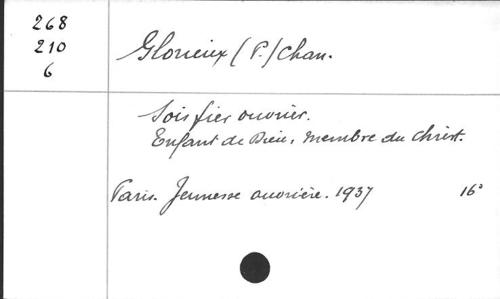 268
210
6
Glorieux (P.) chan.
Sois fier ouvrier.
Enfant de Dieu, membre du Christ.
Paris. Jeunesse ouvrière. 1937 16°